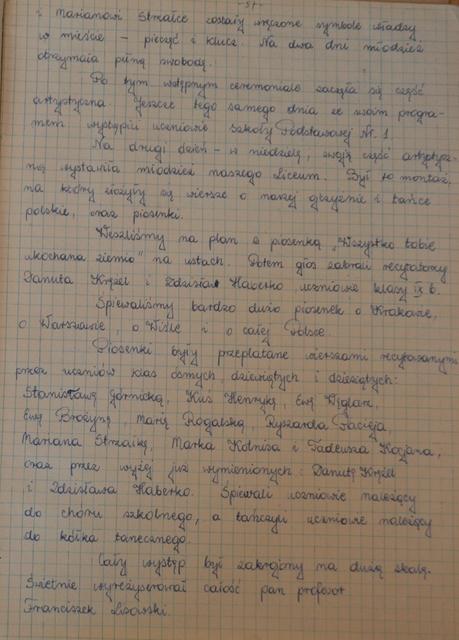 - 57 -
i Marianowi Strzałce zostały wręczone symbole władzy
w mieście - pieczęć i klucz. Na dwa dni młodzież
otrzymała pełną swobodę.
Po tym wstępnym ceremoniale zaczęła się część
artystyczna. Jeszcze tego samego dnia ze swoim progra-
mem wystąpili uczniowie Szkoły Podstawowej Nr 1
Na drugi dzień - w niedzielę, swoją część artystycz-
ną wystawiła młodzież naszego Liceum. Był to montaż,
na który złożyły się wiersze o naszej ojczyźnie i tańce
polskie, oraz piosenki.
Weszliśmy na plan z piosenką "Wszystko tobie
ukochana ziemio" na ustach. Potem głos zabrali recytatorzy
Danuta Kryzel i Zdzisław Haberko uczniowie klasy IX b.
Śpiewaliśmy bardzo dużo piosenek o Krakowie,
o Warszawie, o Wiśle i o całej Polsce.
Piosenki były przeplatane wierszami recytowanymi
przez uczniów klas ósmych, dziewiątych i dziesiątych:
Stanisławę Górnicką, Henrykę, Ewę
Ewę Brożynę, Marię Rogalską, Ryszarda
Mariana Strzałkę, Marka i Tadeusza Kocjana,
oraz przez wyżej już wymienionych: Danutę Kryzel
i Zdzisława Haberko. Śpiewali uczniowie należący
do chóru szkolnego, a tańczyli uczniowie należący
do kółka tanecznego.
Cały występ był zakrojony na dużą skalę.
Świetnie wyreżyserował całość pan profesor
Franciszek Lisowski.